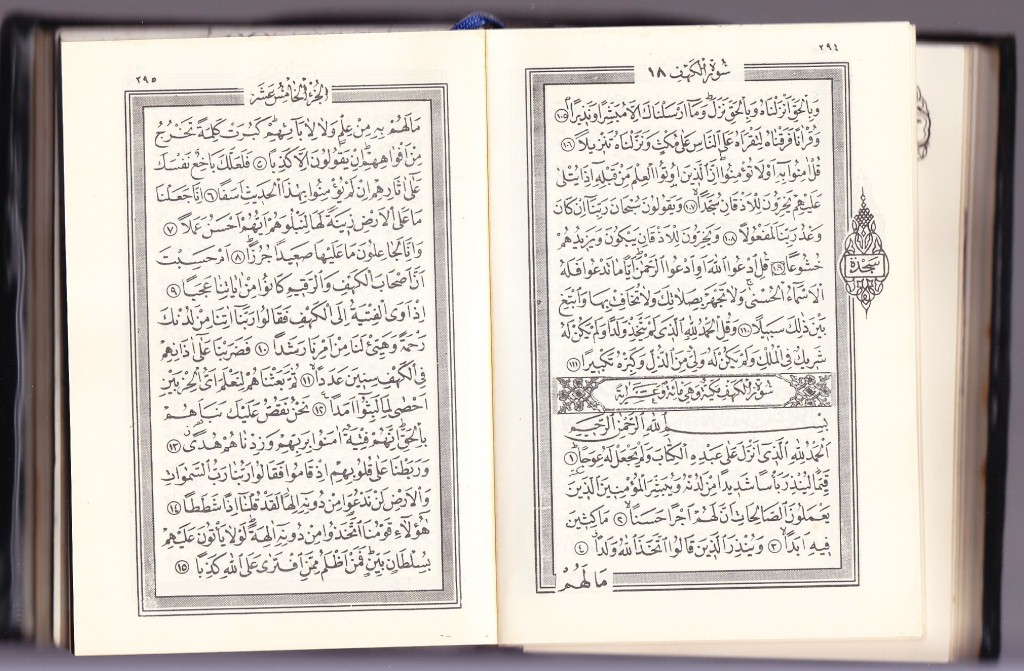 ٢٩٤
سورة الكهف ١٨
وَبِالْحَقِّ اَنْزَلْنَاهُ وَبِالْحَقِّ نَزَلَ وَمَا اَرْسَلْنَاكَ اِلَّا مُبَشِّرًا وَنَذِيرًا ١٠٥
وَقُرْاٰنًا فَرَقْنَاهُ لِتَقْرَاَهُ عَلَى النَّاسِ عَلٰى مُكْثٍ وَنَزَّلْنَاهُ تَنْزِيلًا ١٠٦
قُلْ اٰمِنُوا بِهِ اَوْ لَا تُؤْمِنُوا اِنَّ الَّذِينَ اُوتُوا الْعِلْمَ مِنْ قَبْلِهِ اِذَا يُتْلٰى
عَلَيْهِمْ يَخِرُّونَ لِلْاَذْقَانِ سُجَّدًا ١٠٧ وَيَقُولُونَ سُبْحَانَ رَبِّنَا اِنْ كَانَ
وَعْدُ رَبِّنَا لَمَفْعُولًا ١٠٨ وَيَخِرُّونَ لِلْاَذْقَانِ يَبْكُونَ وَيَزِيدُهُمْ
خُشُوعًا ١٠٩ قُلِ ادْعُوا اللّٰهَ اَوِ ادْعُوا الرَّحْمٰنَ اَيًّا مَا تَدْعُوا فَلَهُ
الْاَسْمَاءُ الْحُسْنٰى وَلَا تَجْهَرْ بِصَلَاتِكَ وَلَا تُخَافِتْ بِهَا وَابْتَغِ
بَيْنَ ذٰلِكَ سَبِيلًا ١١٠ وَقُلِ الْحَمْدُ لِلّٰهِ الَّذِي لَمْ يَتَّخِذْ وَلَدًا وَلَمْ يَكُنْ لَهُ
شَرِيكٌ فِي الْمُلْكِ وَلَمْ يَكُنْ لَهُ وَلِيٌّ مِنَ الذُّلِّ وَكَبِّرْهُ تَكْبِيرًا ١١١
سورة الكهف مكية وهي مائة وعشر اية
بِسْمِ اللّٰهِ الرَّحْمٰنِ الرَّحِيمِ
اَلْحَمْدُ لِلّٰهِ الَّذِي اَنْزَلَ عَلٰى عَبْدِهِ الْكِتَابَ وَلَمْ يَجْعَلْ لَهُ عِوَجًا ١
قَيِّمًا لِيُنْذِرَ بَاْسًا شَدِيدًا مِنْ لَدُنْهُ وَيُبَشِّرَ الْمُؤْمِنِينَ الَّذِينَ
يَعْمَلُونَ الصَّالِحَاتِ اَنَّ لَهُمْ اَجْرًا حَسَنًا ٢ مَاكِثِينَ
فِيهِ اَبَدًا ٣ وَيُنْذِرَ الَّذِينَ قَالُوا اتَّخَذَ اللّٰهُ وَلَدًا ٤
مَا لَهُمْ
سجدة
٢٩٥
الجزء الخامس عشر
مَا لَهُمْ بِهِ مِنْ عِلْمٍ وَلَا لِاٰبَائِهِمْ كَبُرَتْ كَلِمَةً تَخْرُجُ
مِنْ اَفْوَاهِهِمْ اِنْ يَقُولُونَ اِلَّا كَذِبًا ٥ فَلَعَلَّكَ بَاخِعٌ نَفْسَكَ
عَلٰى اٰثَارِهِمْ اِنْ لَمْ يُؤْمِنُوا بِهٰذَا الْحَدِيثِ اَسَفًا ٦ اِنَّا جَعَلْنَا
مَا عَلَى الْاَرْضِ زِينَةً لَهَا لِنَبْلُوَهُمْ اَيُّهُمْ اَحْسَنُ عَمَلًا ٧
وَاِنَّا لَجَاعِلُونَ مَا عَلَيْهَا صَعِيدًا جُرُزًا ٨ اَمْ حَسِبْتَ
اَنَّ اَصْحَابَ الْكَهْفِ وَالرَّقِيمِ كَانُوا مِنْ اٰيَاتِنَا عَجَبًا ٩
اِذْ اَوَى الْفِتْيَةُ اِلَى الْكَهْفِ فَقَالُوا رَبَّنَا اٰتِنَا مِنْ لَدُنْكَ
رَحْمَةً وَهَيِّئْ لَنَا مِنْ اَمْرِنَا رَشَدًا ١٠ فَضَرَبْنَا عَلٰى اٰذَانِهِمْ
فِي الْكَهْفِ سِنِينَ عَدَدًا ١١ ثُمَّ بَعَثْنَاهُمْ لِنَعْلَمَ اَيُّ الْحِزْبَيْنِ
اَحْصٰى لِمَا لَبِثُوا اَمَدًا ١٢ نَحْنُ نَقُصُّ عَلَيْكَ نَبَاَهُمْ
بِالْحَقِّ اِنَّهُمْ فِتْيَةٌ اٰمَنُوا بِرَبِّهِمْ وَزِدْنَاهُمْ هُدًى ١٣
وَرَبَطْنَا عَلٰى قُلُوبِهِمْ اِذْ قَامُوا فَقَالُوا رَبُّنَا رَبُّ السَّمٰوَاتِ
وَالْاَرْضِ لَنْ نَدْعُوَا مِنْ دُونِهِ اِلٰهًا لَقَدْ قُلْنَا اِذًا شَطَطًا ١٤
هٰؤُلَاءِ قَوْمُنَا اتَّخَذُوا مِنْ دُونِهِ اٰلِهَةً لَوْلَا يَاْتُونَ عَلَيْهِمْ
بِسُلْطَانٍ بَيِّنٍ فَمَنْ اَظْلَمُ مِمَّنِ افْتَرٰى عَلَى اللّٰهِ كَذِبًا ١٥